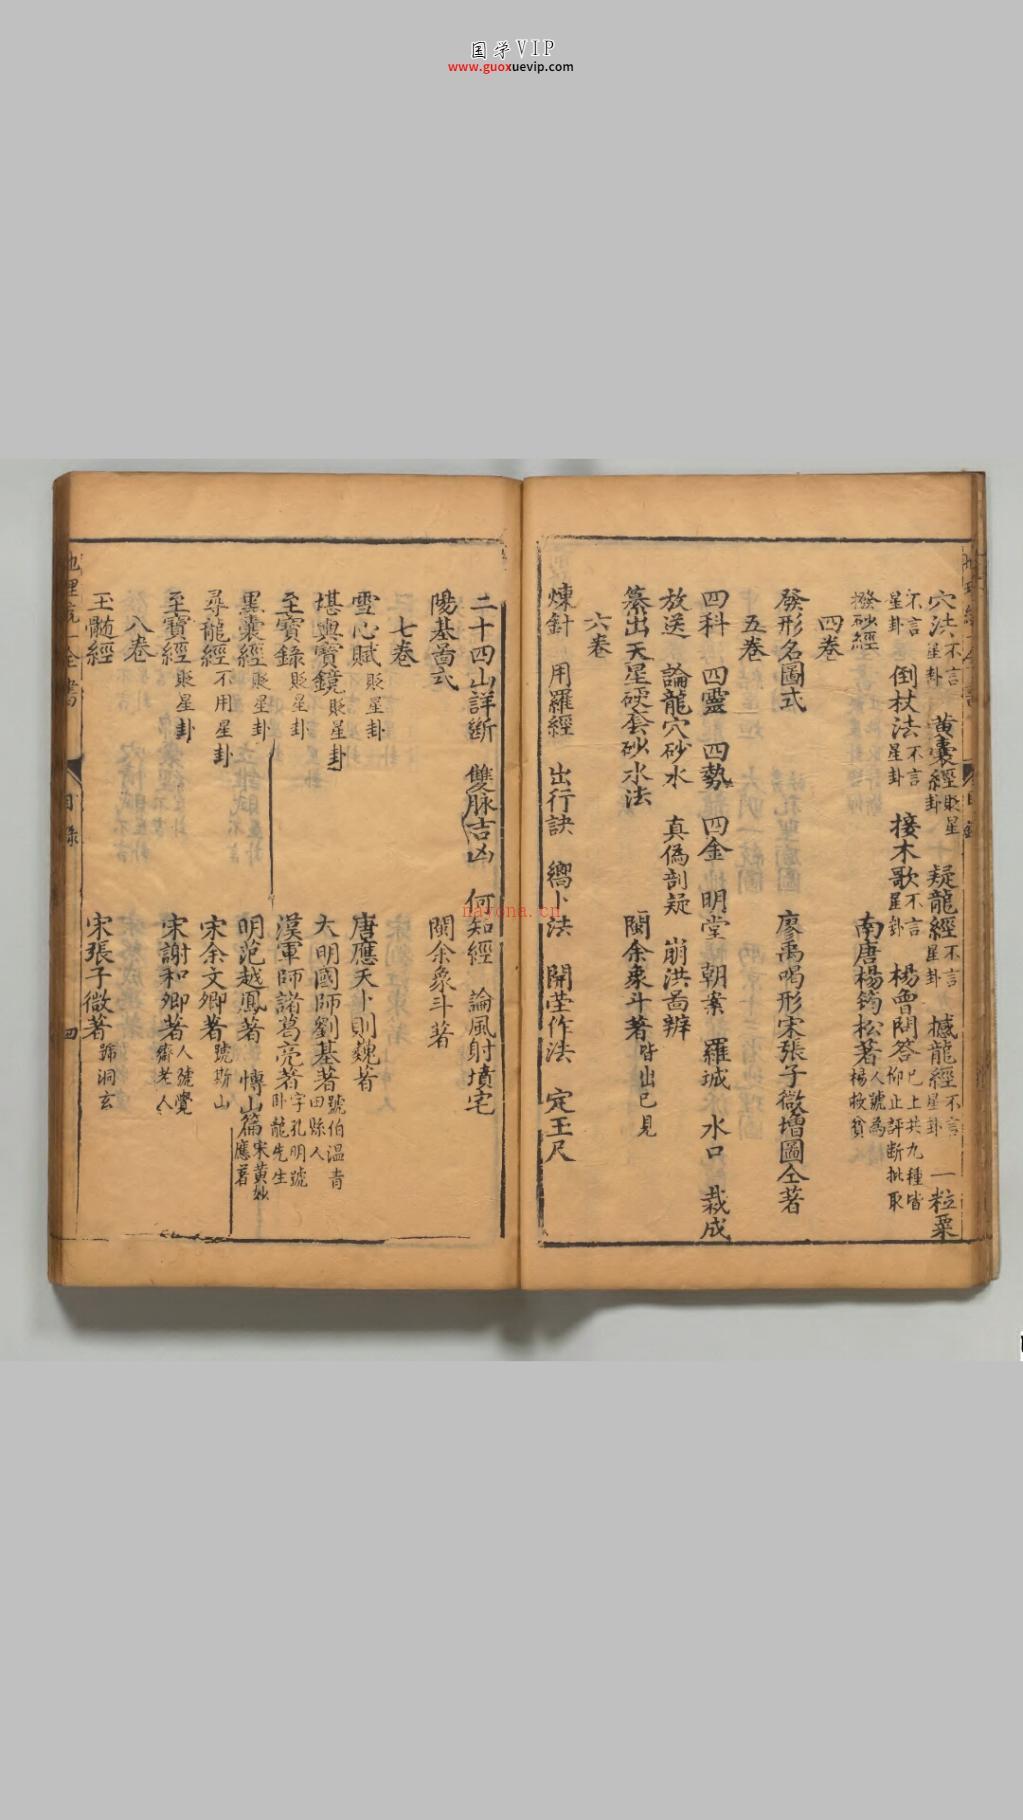 国学VIP
www.guoxuevip.com
穴法不言星卦 黄囊經貶星卦 疑龍經不言星卦 撼龍經不言星卦 一粒粟
不言星卦 倒杖法不言星卦 接木歌不言星卦 楊曾問答已上共九種皆仰止評斷批取
撥砂經 南唐楊筠松著人號為楊救貧
四巻
發形名圖式 廖禹喝形宋張子微增圖仝著
五巻
四科 四靈 四勢 四金 明堂 朝案 羅城 水口 裁成
放送 論龍穴砂水 真偽剖疑 崩洪啚辨
纂出天星硬套砂水法 閩余象斗著皆出已見
六巻
煉針 用羅經 出行訣 嚮卜法 開茔作法 定王尺
二十四山詳斷 雙脉吉凶 何知經 論風射墳宅
陽基啚式 閩余象斗著
七巻
雪心賦貶星卦 唐應天卜則巍著
堪輿寳鏡貶星卦 大明國師劉基著號伯温青田縣人
至寳錄貶星卦 漢軍師諸葛亮著字孔明號卧龍先生
黑囊經貶星卦 明范越鳳著 愽山篇宋黄妙應著
尋龍經不用星卦 宋余文卿著號斯山
至寳經貶星卦 宋謝和卿著人號覺齋老人
八巻
玉髄經 宋張子微著號洞玄
地理統一全書
目錄
四
nayona.cn